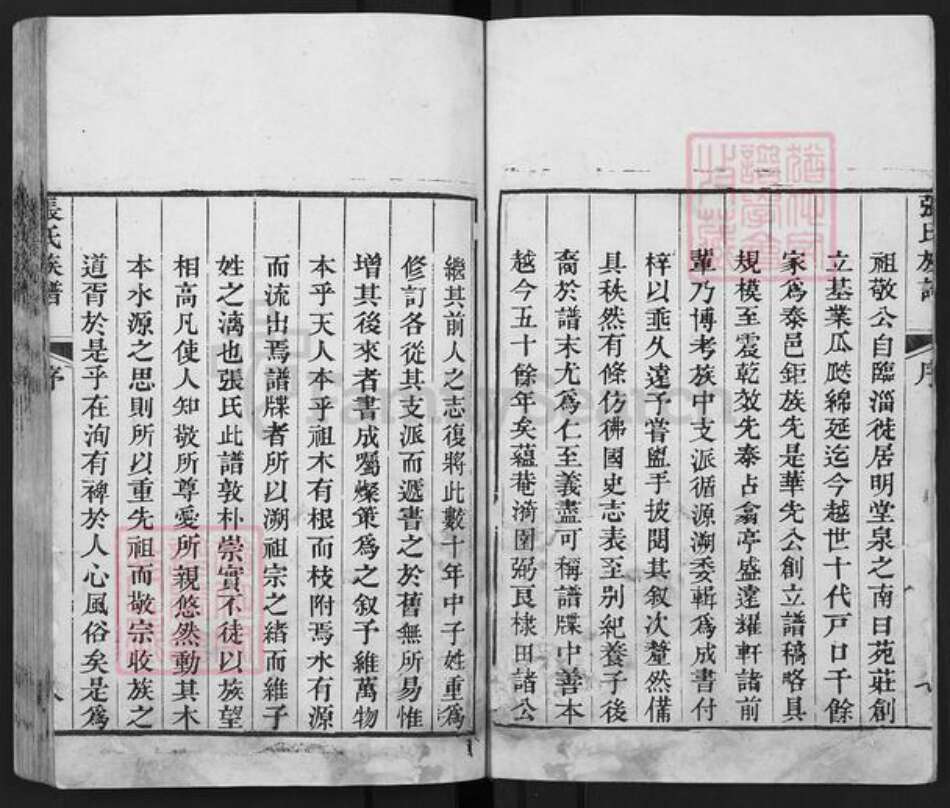 張氏族譜
序
祖敬公自臨淄徙居明堂泉之南曰苑莊創
立基業瓜瓞綿延迄今越世十代戸口千餘
家為泰邑鉅族先是華先公創立譜稿略具
規模至震乾效先泰占翕亭盛遠耀軒諸前
輩乃博考族中支派循源溯委輯為成書付
梓以垂久遠予嘗盥手披閱其叙次釐然備
具秩然有條仿彿國史志表至別紀養子後
裔於譜末尤為仁至義盡可稱譜牒中善本
越今五十餘年矣蘊菴漪園弼艮棣田諸公
繼其前人之志復將此數十年中子姓重為
修訂各從其支派而遞書之於舊無所易惟
增其後來者書成囑燦策為之叙予維萬物
本乎天人本乎祖木有根而枝附焉水有源
而流出焉譜牒者所以溯祖宗之緒而維子
姓之漓也張氏此譜敦朴崇實不徒以族望
相高凡使人知敬所尊愛所親悠然動其木
本水源之思則所以重先祖而敬宗收族之
道胥於是乎在洵有裨於人心風俗矣是為
張氏族譜
序
八